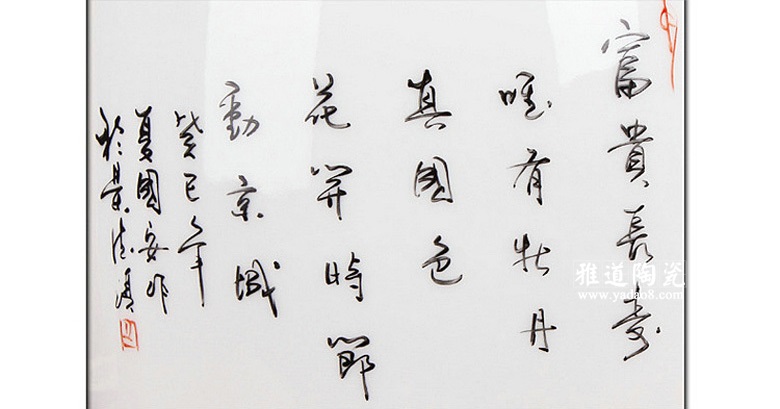 富貴長壽
唯有牡丹
真國色
花開時節
動京城
癸巳年
夏國安作
於景德鎮
雅道陶瓷
www.yadao8.com